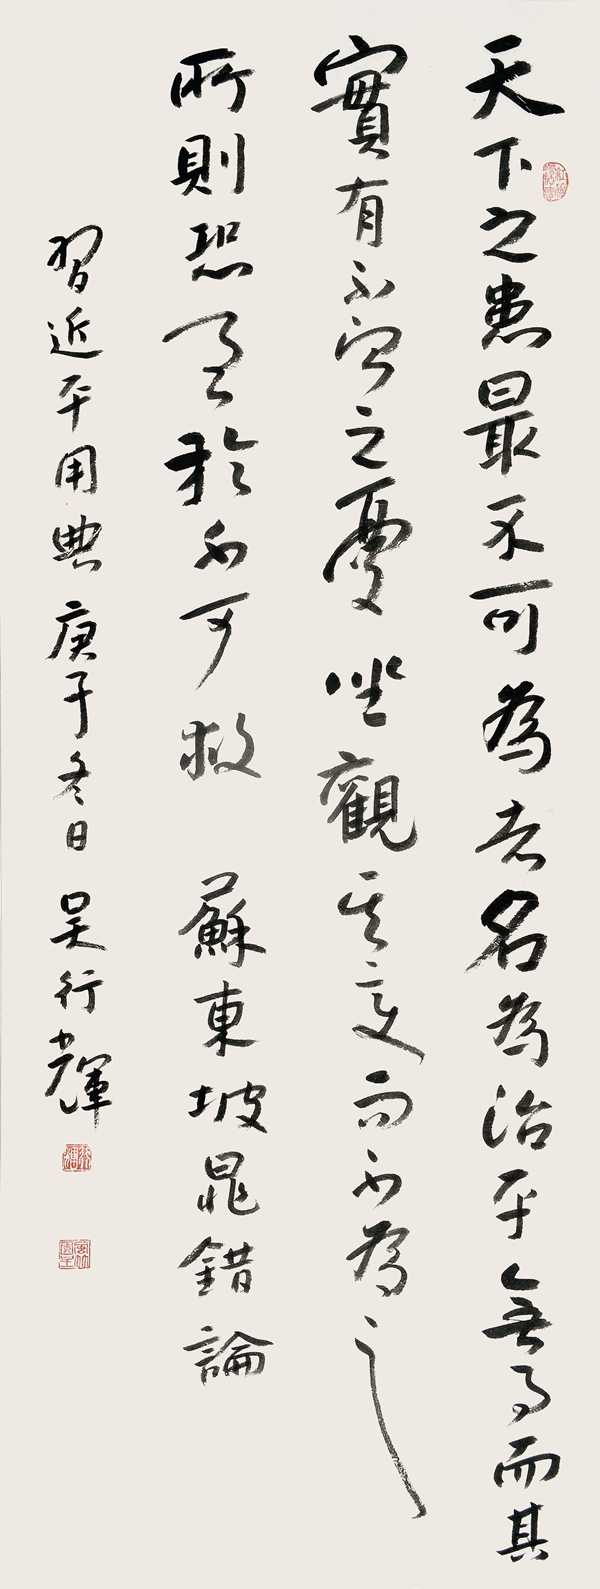 天下之患最不可為者名為治平無事而其
實有不測之憂坐觀其變而不為之
所則恐至於不可救 蘇東坡晁錯論
習近平用典 庚子冬日 吴行輝